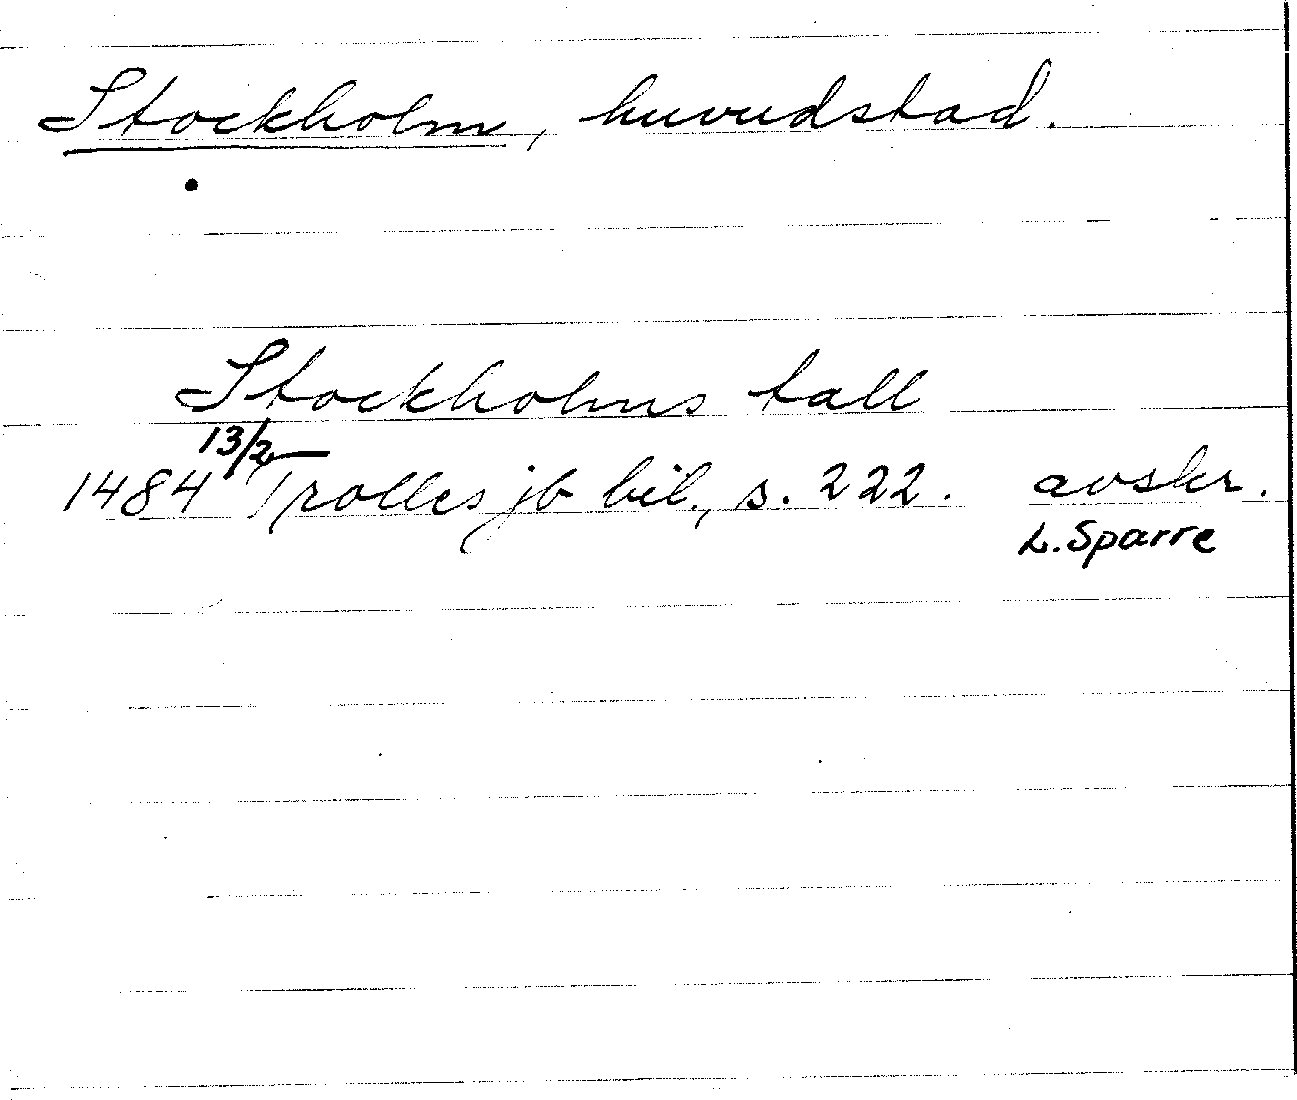 Stockholm, huvudstad.
Stockholms tall
13/2
1484 Trolles jb bil., s. 222. avskr.
L. Sparre